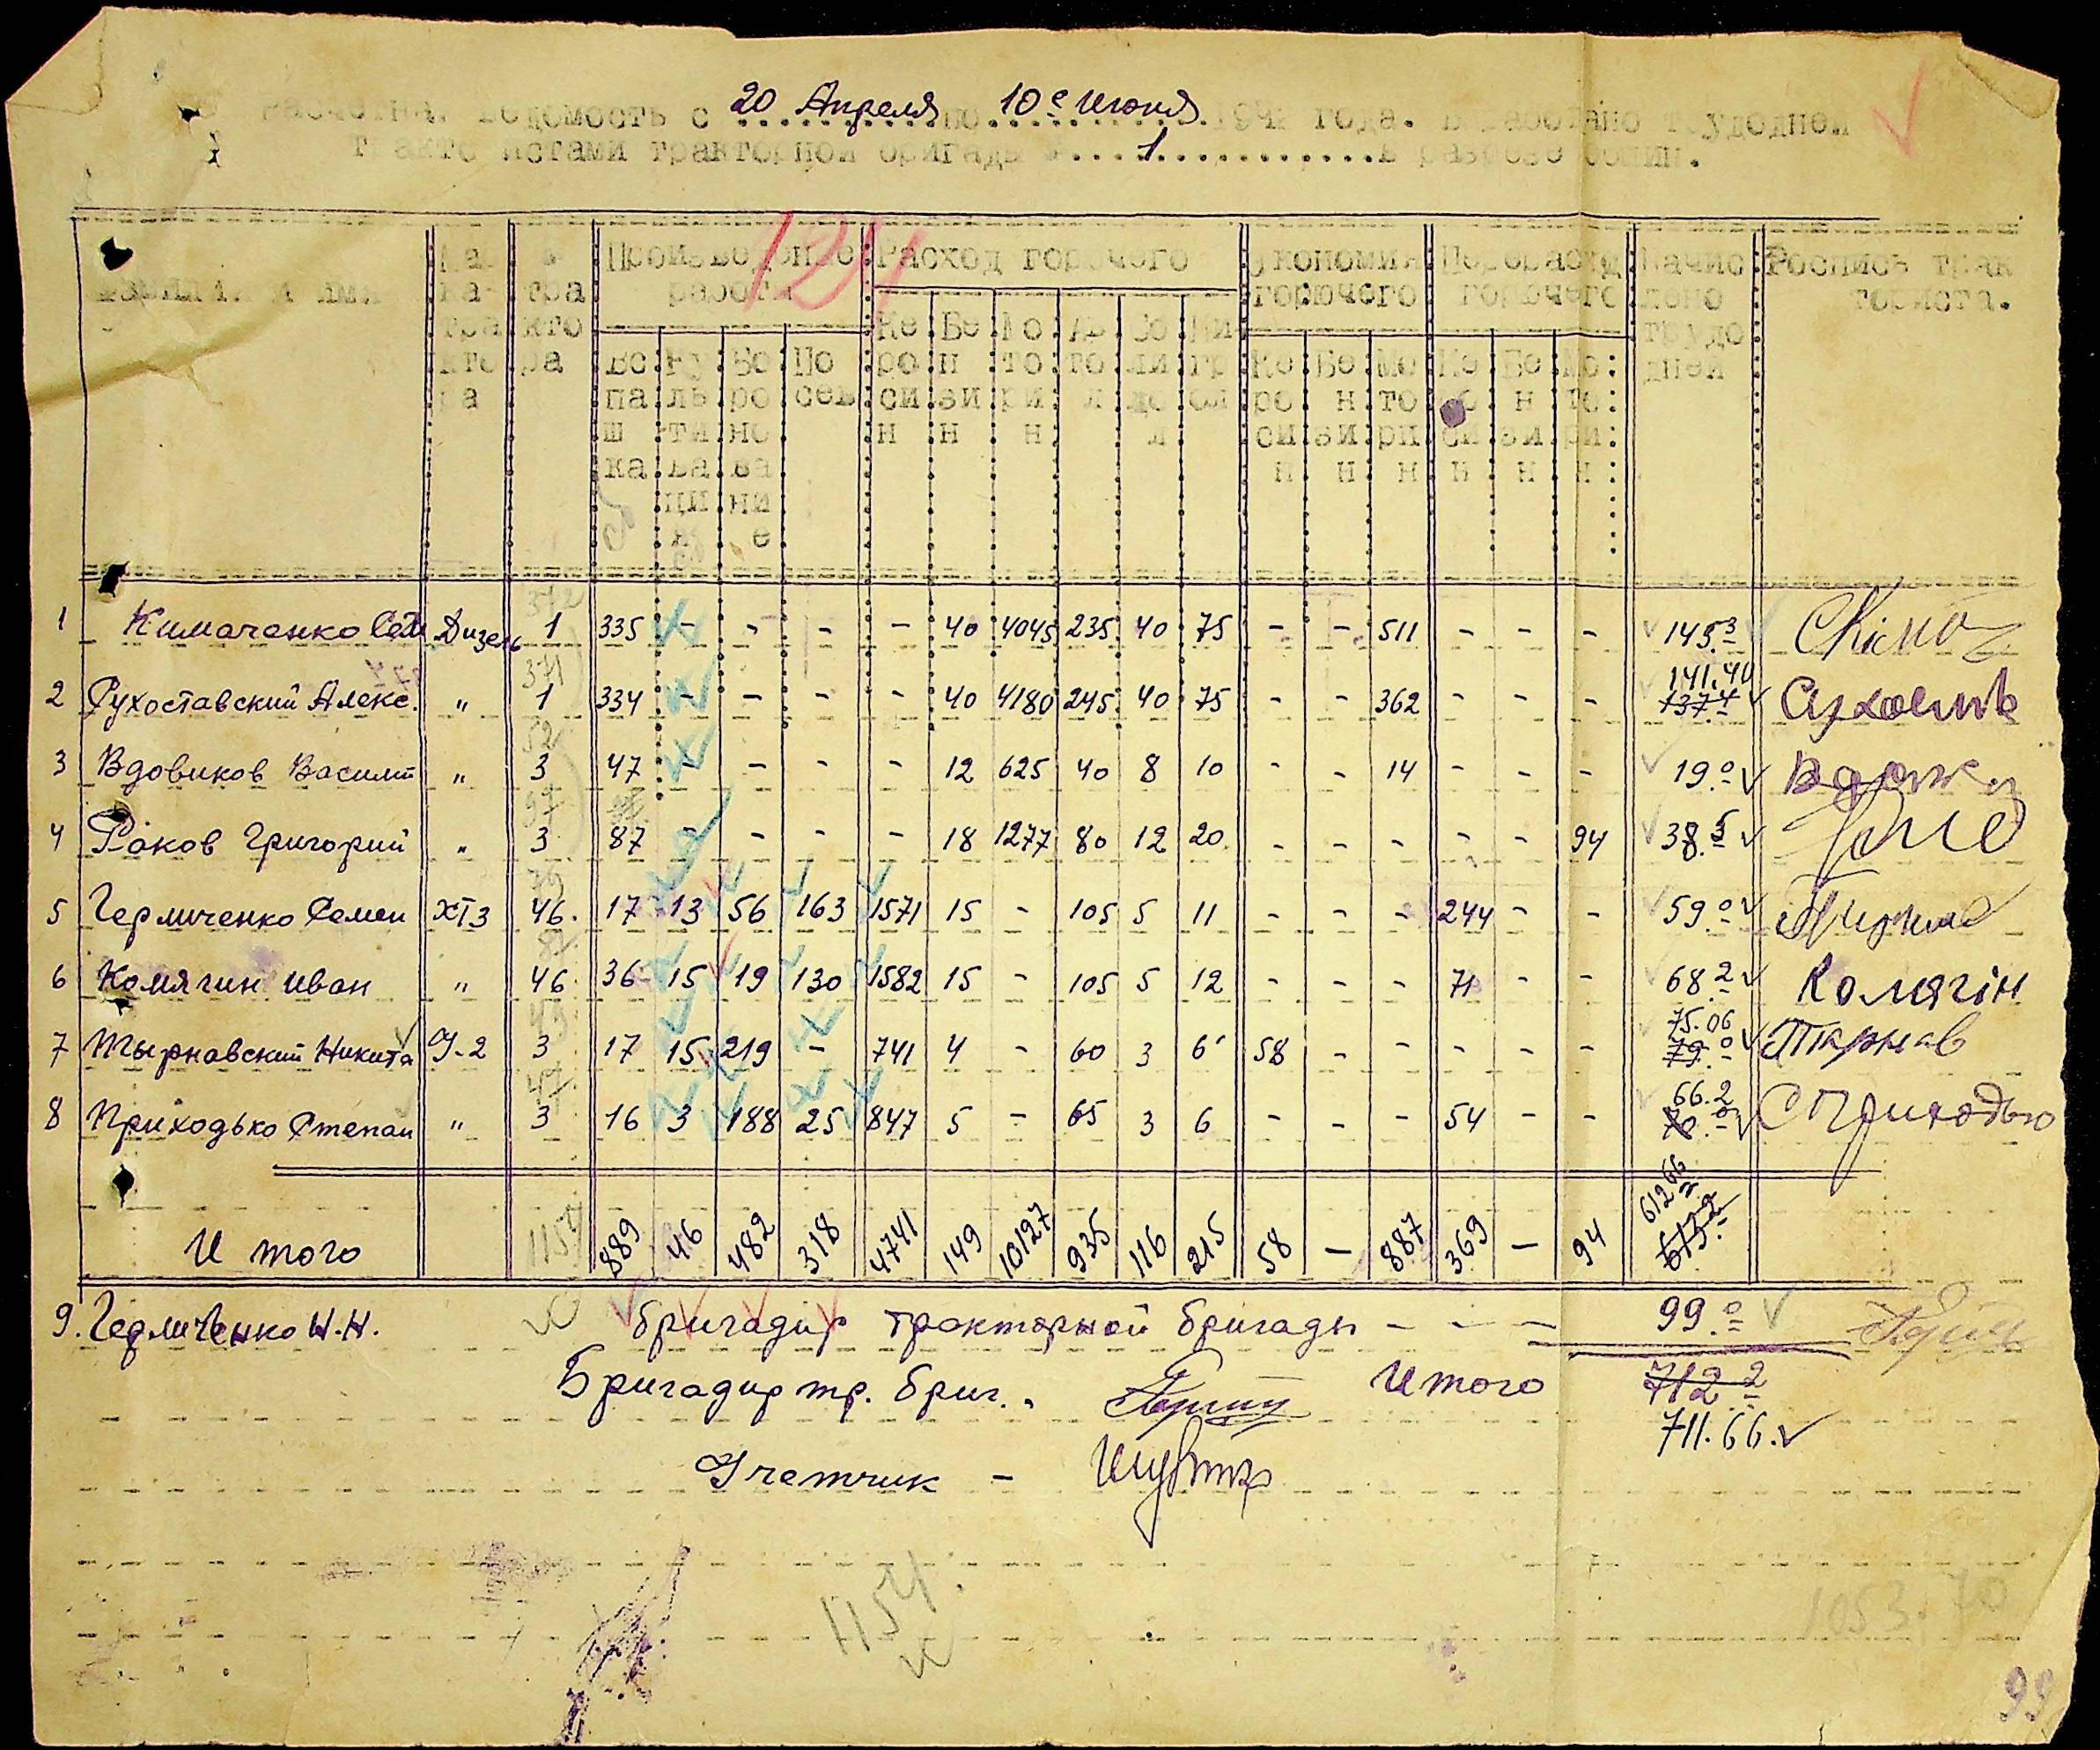 Расчетная ведомость с 20 Апреля по 10е Июня 194 года. Выработано трудодней
трактористами тракторной бригады № 1 в разрезе
121
Фамилия и имя
Марка трактора
№ трактора
Произведенные работы
Расход горючего
Экономия горючего
Перерасход горючего
Начислено трудодней
Роспись тракториста.
Вспашка Культивация Боронование Посев Керосин Бензин Моторин Автол Солидол Нигрол Керосин Бензин Моторин Керосин Бензин Моторин
372
1 Кимаченко Сем Дизель 1 335 - - - - 40 4045 235 40 75 - - 511 - - - 145.3
371 141.40
2 Сухоставский Алекс. " 1 334 - - - - 40 4180 245 40 75 - - 362 - - - 137.4
52
3 Вдовиков Василий " 3 47 - - - - 12 625 40 8 10 - - 14 - - - 19.0
97
4 Раков Григорий " 3 87 - - - - 18 1277 80 12 20 - - - - - 94 38.5
79
5 Германченко Семен ХТЗ 46. 17 13 56 163 1571 15 - 105 5 11 - - - 244 - - 59.0
6 Комягин Иван " 46 36 15 19 130 1582 15 - 105 5 12 - - - 71 - - 68.2 Комягін
75.06
7 Тырнавский Никита У-2 3 17 15 219 - 741 4 - 60 3 6 58 - - - - - 79.0 Тарнав
66.2
8 Приходько Степан " 3 16 3 188 25 847 5 - 65 3 6 - - - 54 - - 70.0 СПриходько
612 66
Итого 1154 889 46 482 318 4741 149 10127 935 116 215 58 - 887 369 - 94 613.2
9. Германченко Н.Н. бригадир тракторной бригады - - - 99.0
Бригадир тр. бриг. Итого 712 2
711.66.
Учетчик -
1154.
1053.70
99